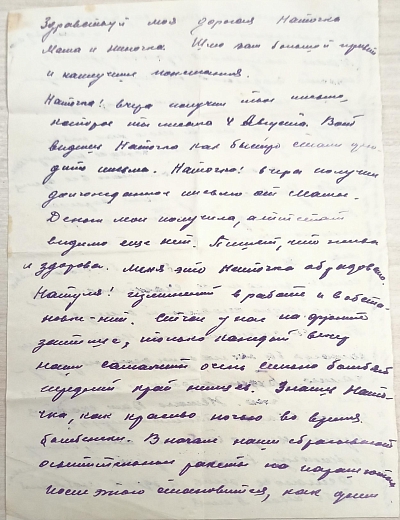 Здравствуй моя дорогая Наточка
Мама и Ниночка. Шлю вам большой привет
и наилучшие пожелания.
Наточка! вчера получил твое письмо,
которое ты писала 4 Августа. Вот
видишь Наточка как быстро стали
дить письма. Наточка! вчера получил
долгожданное письмо от мамы.
Деньги мои получила, а аттестат
видимо еще нет. Пишет, что жива
и здорова. Меня это Наточка обрадовало.
Натуля! изменений в работе и в обста-
новке-нет. Сейчас у нас на фронте
затишье, только каждый вечер
наши самолеты очень сильно бомбят
передний край немцев. Знаешь Нато-
чка, как красиво ночью во время
бомбежки. В начале наши сбрасывают
осветительные ракеты на парашютах
после этого становится, как днем